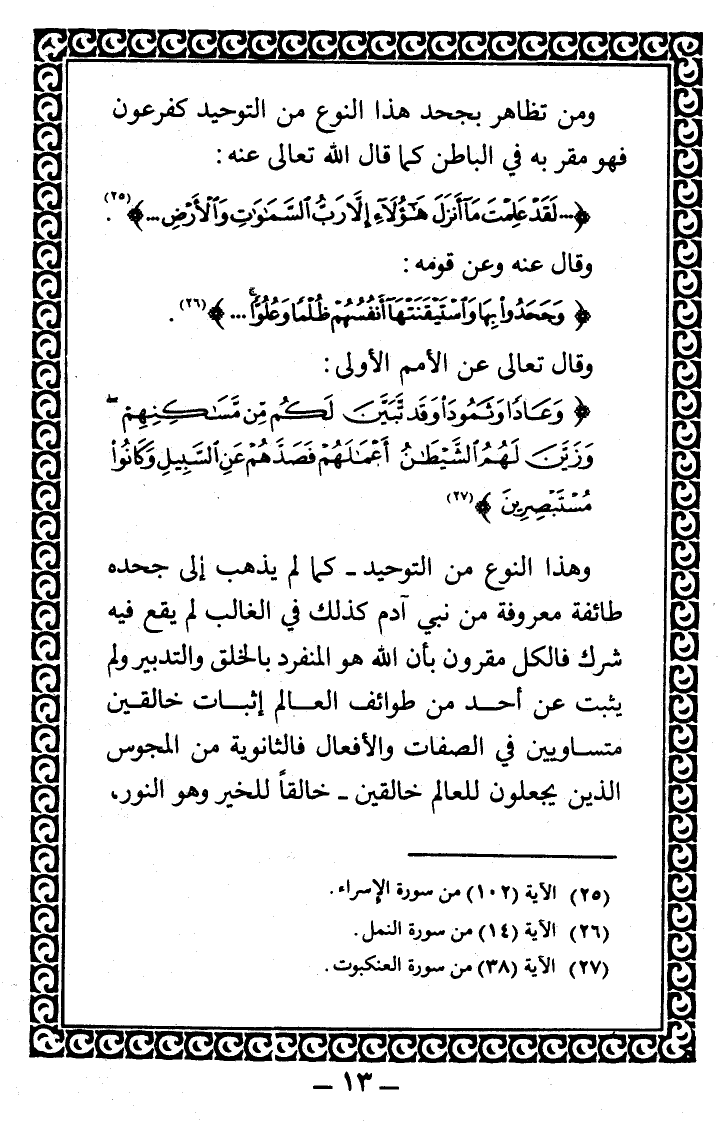 ومن تظاهر بجحد هذا النوع من التوحيد كفرعون
فهو مقر به في الباطن كما قال الله تعالى عنه :
﴿... لَقَدْ عَلِمْتَ مَآ أَنزَلَ هَٰٓؤُلَآءِ إِلَّا رَبُّ ٱلسَّمَٰوَٰتِ وَٱلْأَرْضِ ...﴾(٢٥).
وقال عنه وعن قومه :
﴿ وَجَحَدُوا۟ بِهَا وَٱسْتَيْقَنَتْهَآ أَنفُسُهُمْ ظُلْمًا وَعُلُوًّا ۚ ... ﴾(٢٦) .
وقال تعالى عن الأمم الأولى :
﴿ وَعَادًا وَثَمُودَا۟ وَقَد تَّبَيَّنَ لَكُم مِّن مَّسَٰكِنِهِمْ ۖ
وَزَيَّنَ لَهُمُ ٱلشَّيْطَٰنُ أَعْمَٰلَهُمْ فَصَدَّهُمْ عَنِ ٱلسَّبِيلِ وَكَانُوا۟
مُسْتَبْصِرِينَ ﴾(٢٧)
وهذا النوع من التوحيد ـ كما لم يذهب إلى جحده
طائفة معروفة من نبي آدم كذلك في الغالب لم يقع فيه
شرك فالكل مقرون بأن الله هو المنفرد بالخلق والتدبير ولم
يثبت عن أحد من طوائف العالم إثبات خالقين
متساويين في الصفات والأفعال فالثانوية من المجوس
الذين يجعلون للعالم خالقين ـ خالقاً للخير وهو النور،
(٢٥) الآية (١٠٢) من سورة الإسراء .
(٢٦) الآية (١٤) من سورة النمل .
(٢٧) الآية (٣٨) من سورة العنكبوت .
ـ ١٣ ـ